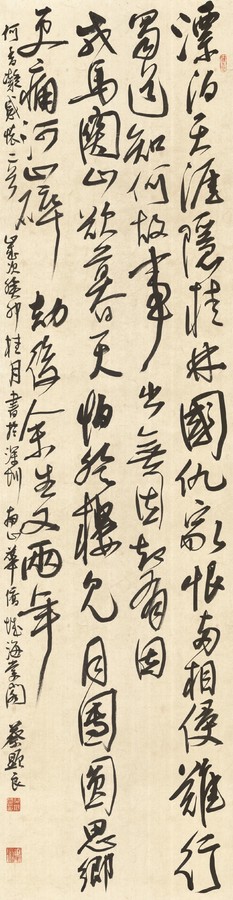 漂泊天涯隱桂林國仇家恨兩相侵難行
蜀道知何故事出無因却有因
戎馬關山欲暮天怕登樓見月團圓思鄉
更痛河山碎 劫後余生又兩年
何香凝感懷二首 歲次癸卯桂月書於深圳南山華僑城海閣 蔡顯良